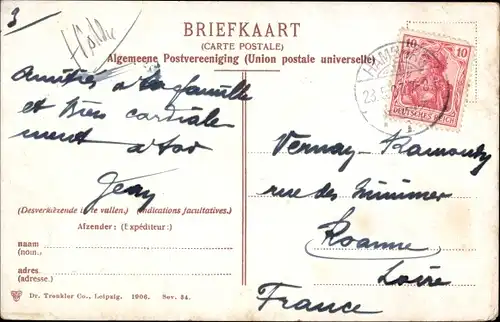 3
BRIEFKAART
(CARTE POSTALE)
Algemeene Postvereeniging (Union postale universelle)
10 10
DEUTSCHES REICH
Amitiés à ta famille
et bien cordiale
ment à toi
Jean
Vernay
rue des
Roanne
Loire
France
(Desverkiezende in te vullen.) (Indications facultatives.)
Afzender: (Expéditeur:)
naam
(nom.)
adres
(adresse.)
Dr. Trenkler Co., Leipzig. 1906. Sev. 54.